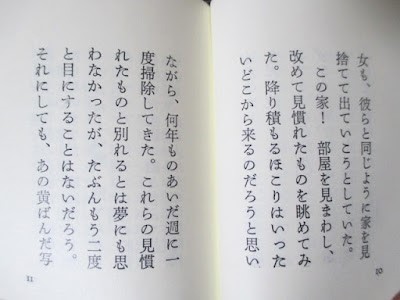 女も、彼らと同じように家を見
捨てて出ていこうとしていた。
この家!　部屋を見まわし、
改めて見慣れたものを眺めてみ
た。降り積もるほこりはいった
いどこから来るのだろうと思い
10
ながら、何年ものあいだ週に一
度掃除してきた。これらの見慣
れたものと別れるとは夢にも思
わなかったが、たぶんもう二度
と目にすることはないだろう。
それにしても、あの黄ばんだ写
11